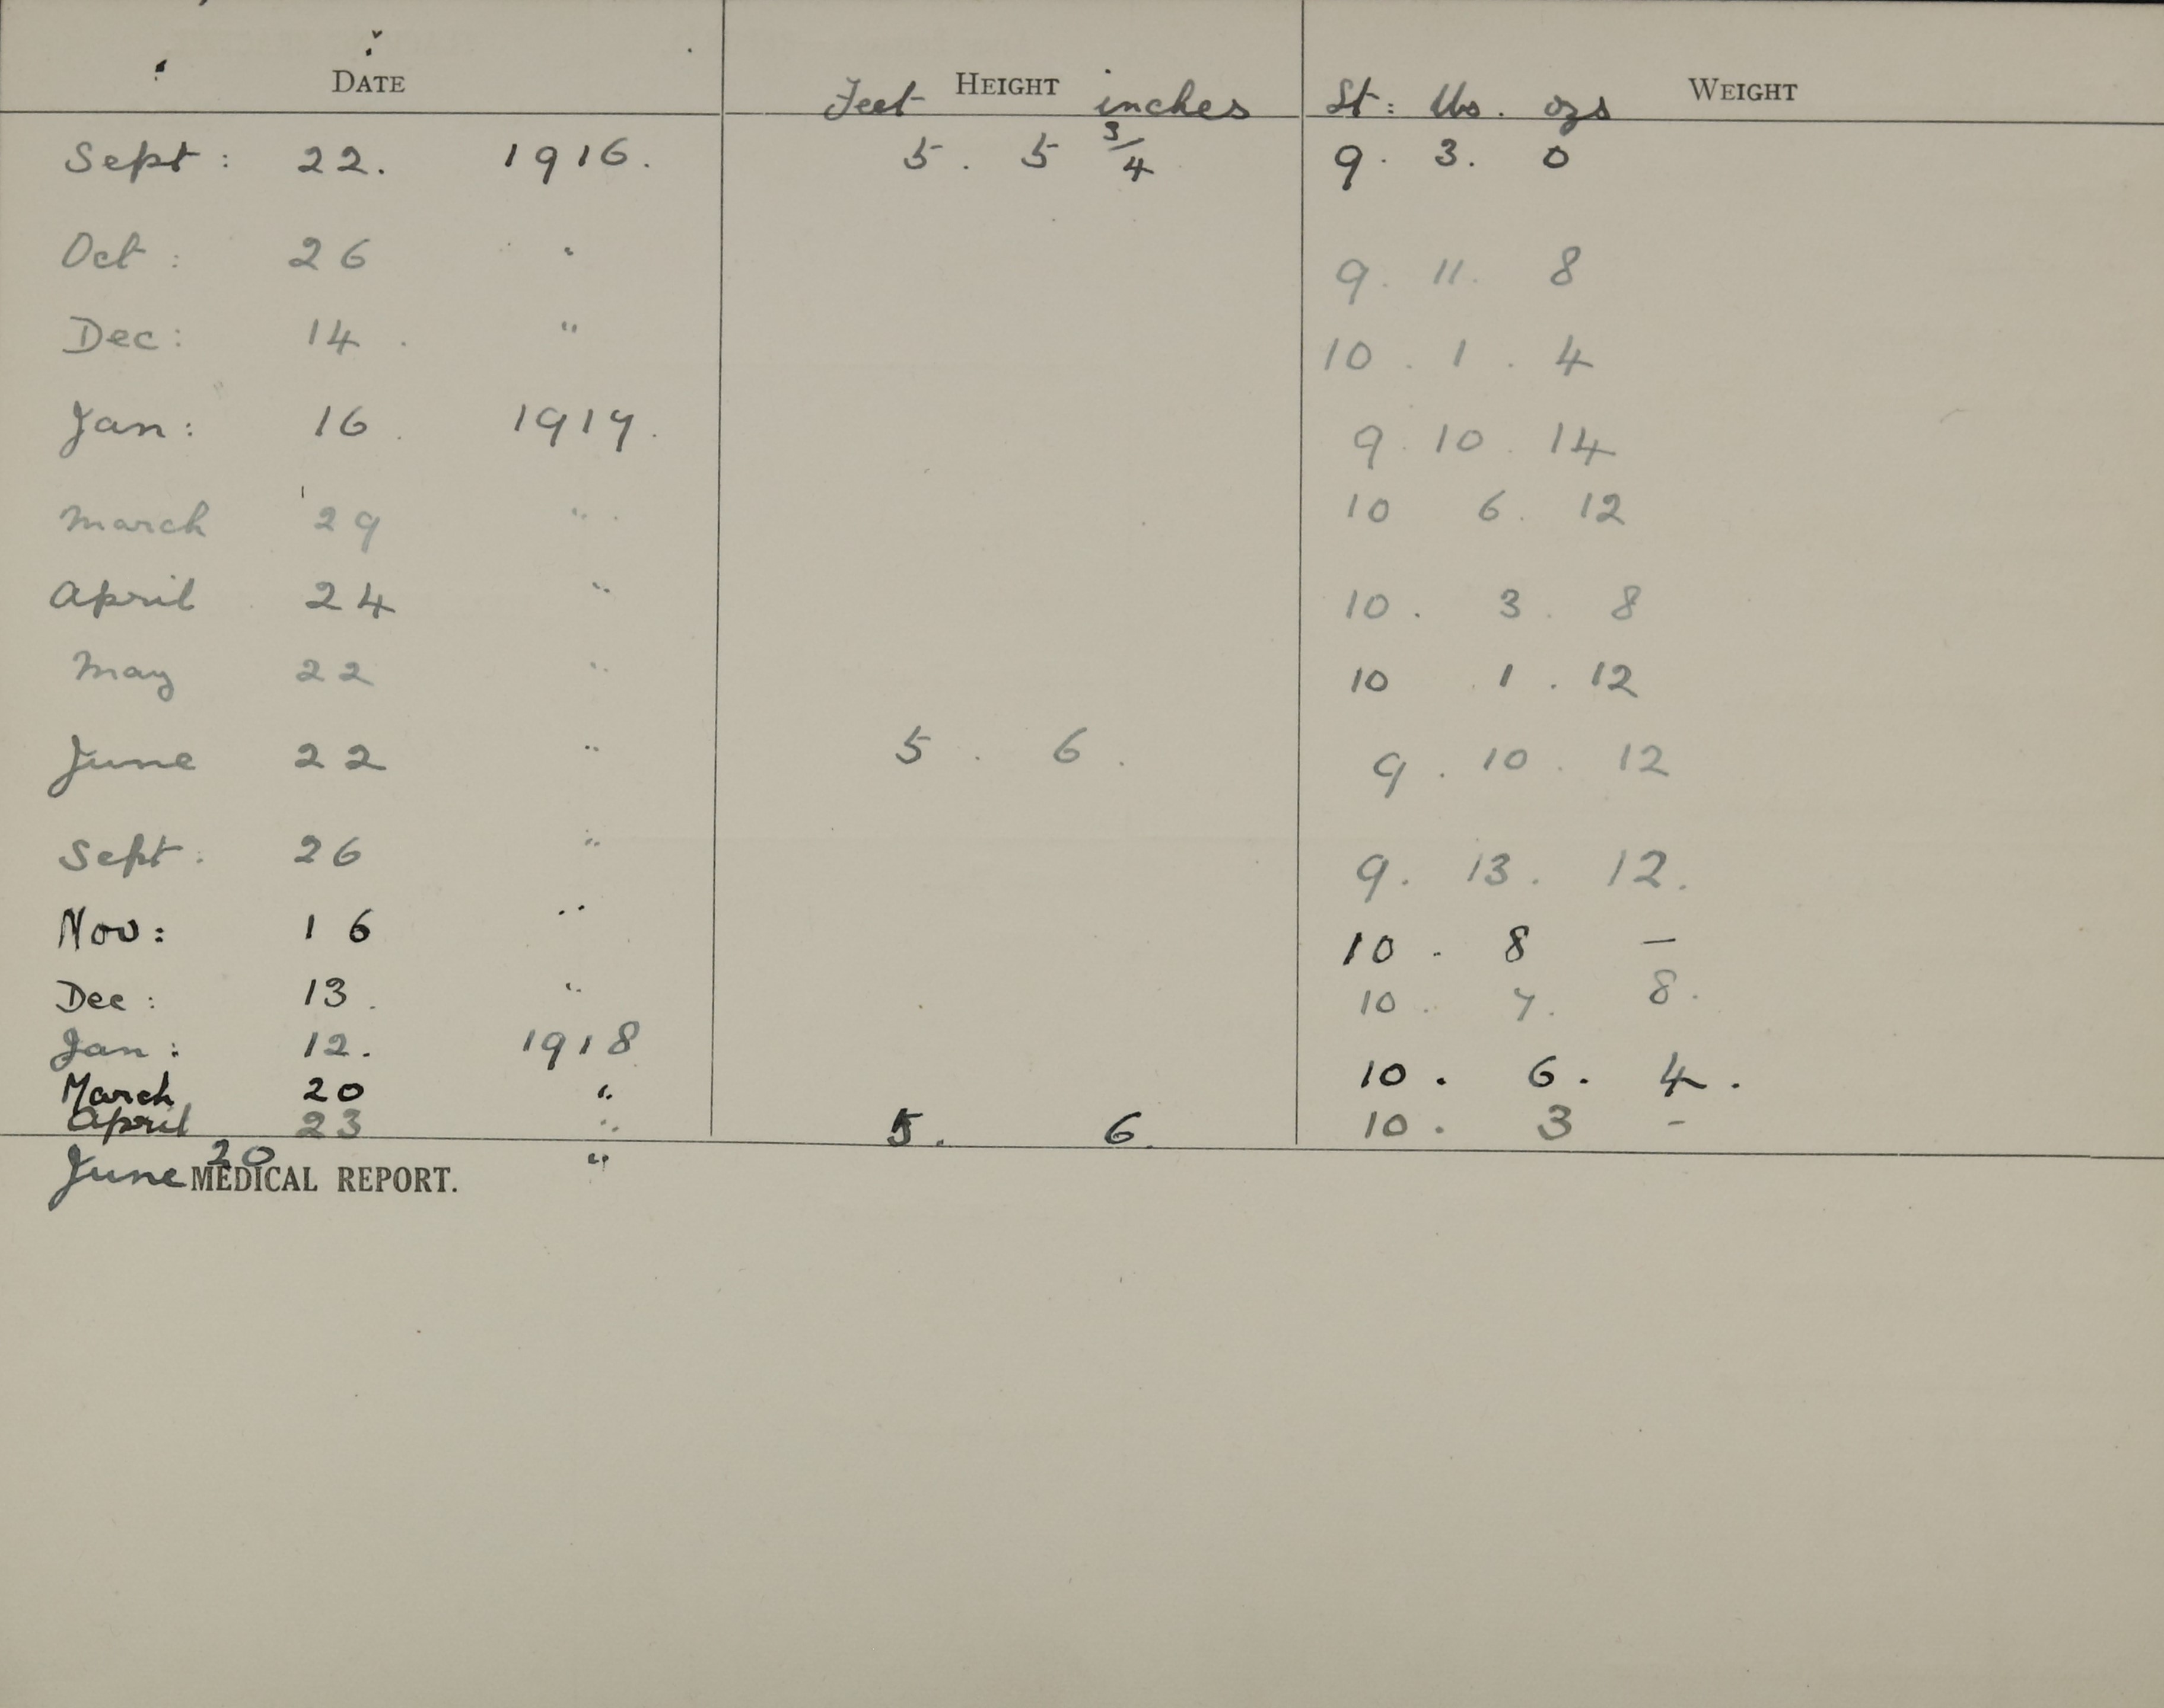 DATE HEIGHT WEIGHT
Feet inches St: lbs. ozs
Sept: 22. 1916. 5. 5 3/4 9. 3. 0
Oct: 26 " 9. 11. 8
Dec: 14. " 10. 1. 4
Jan: 16. 1917. 9. 10. 14
March 29 " 10 6. 12
April 24 " 10. 3. 8
May 22 " 10 1. 12
June 22 " 5. 6. 9. 10. 12
Sept. 26 " 9. 13. 12.
Nov: 16 " 10. 8 —
Dec: 13. " 10. 7. 8.
Jan: 12. 1918
March 20 " 10. 6. 4.
April 23 " 5. 6. 10. 3 -
June 20 "
MEDICAL REPORT.